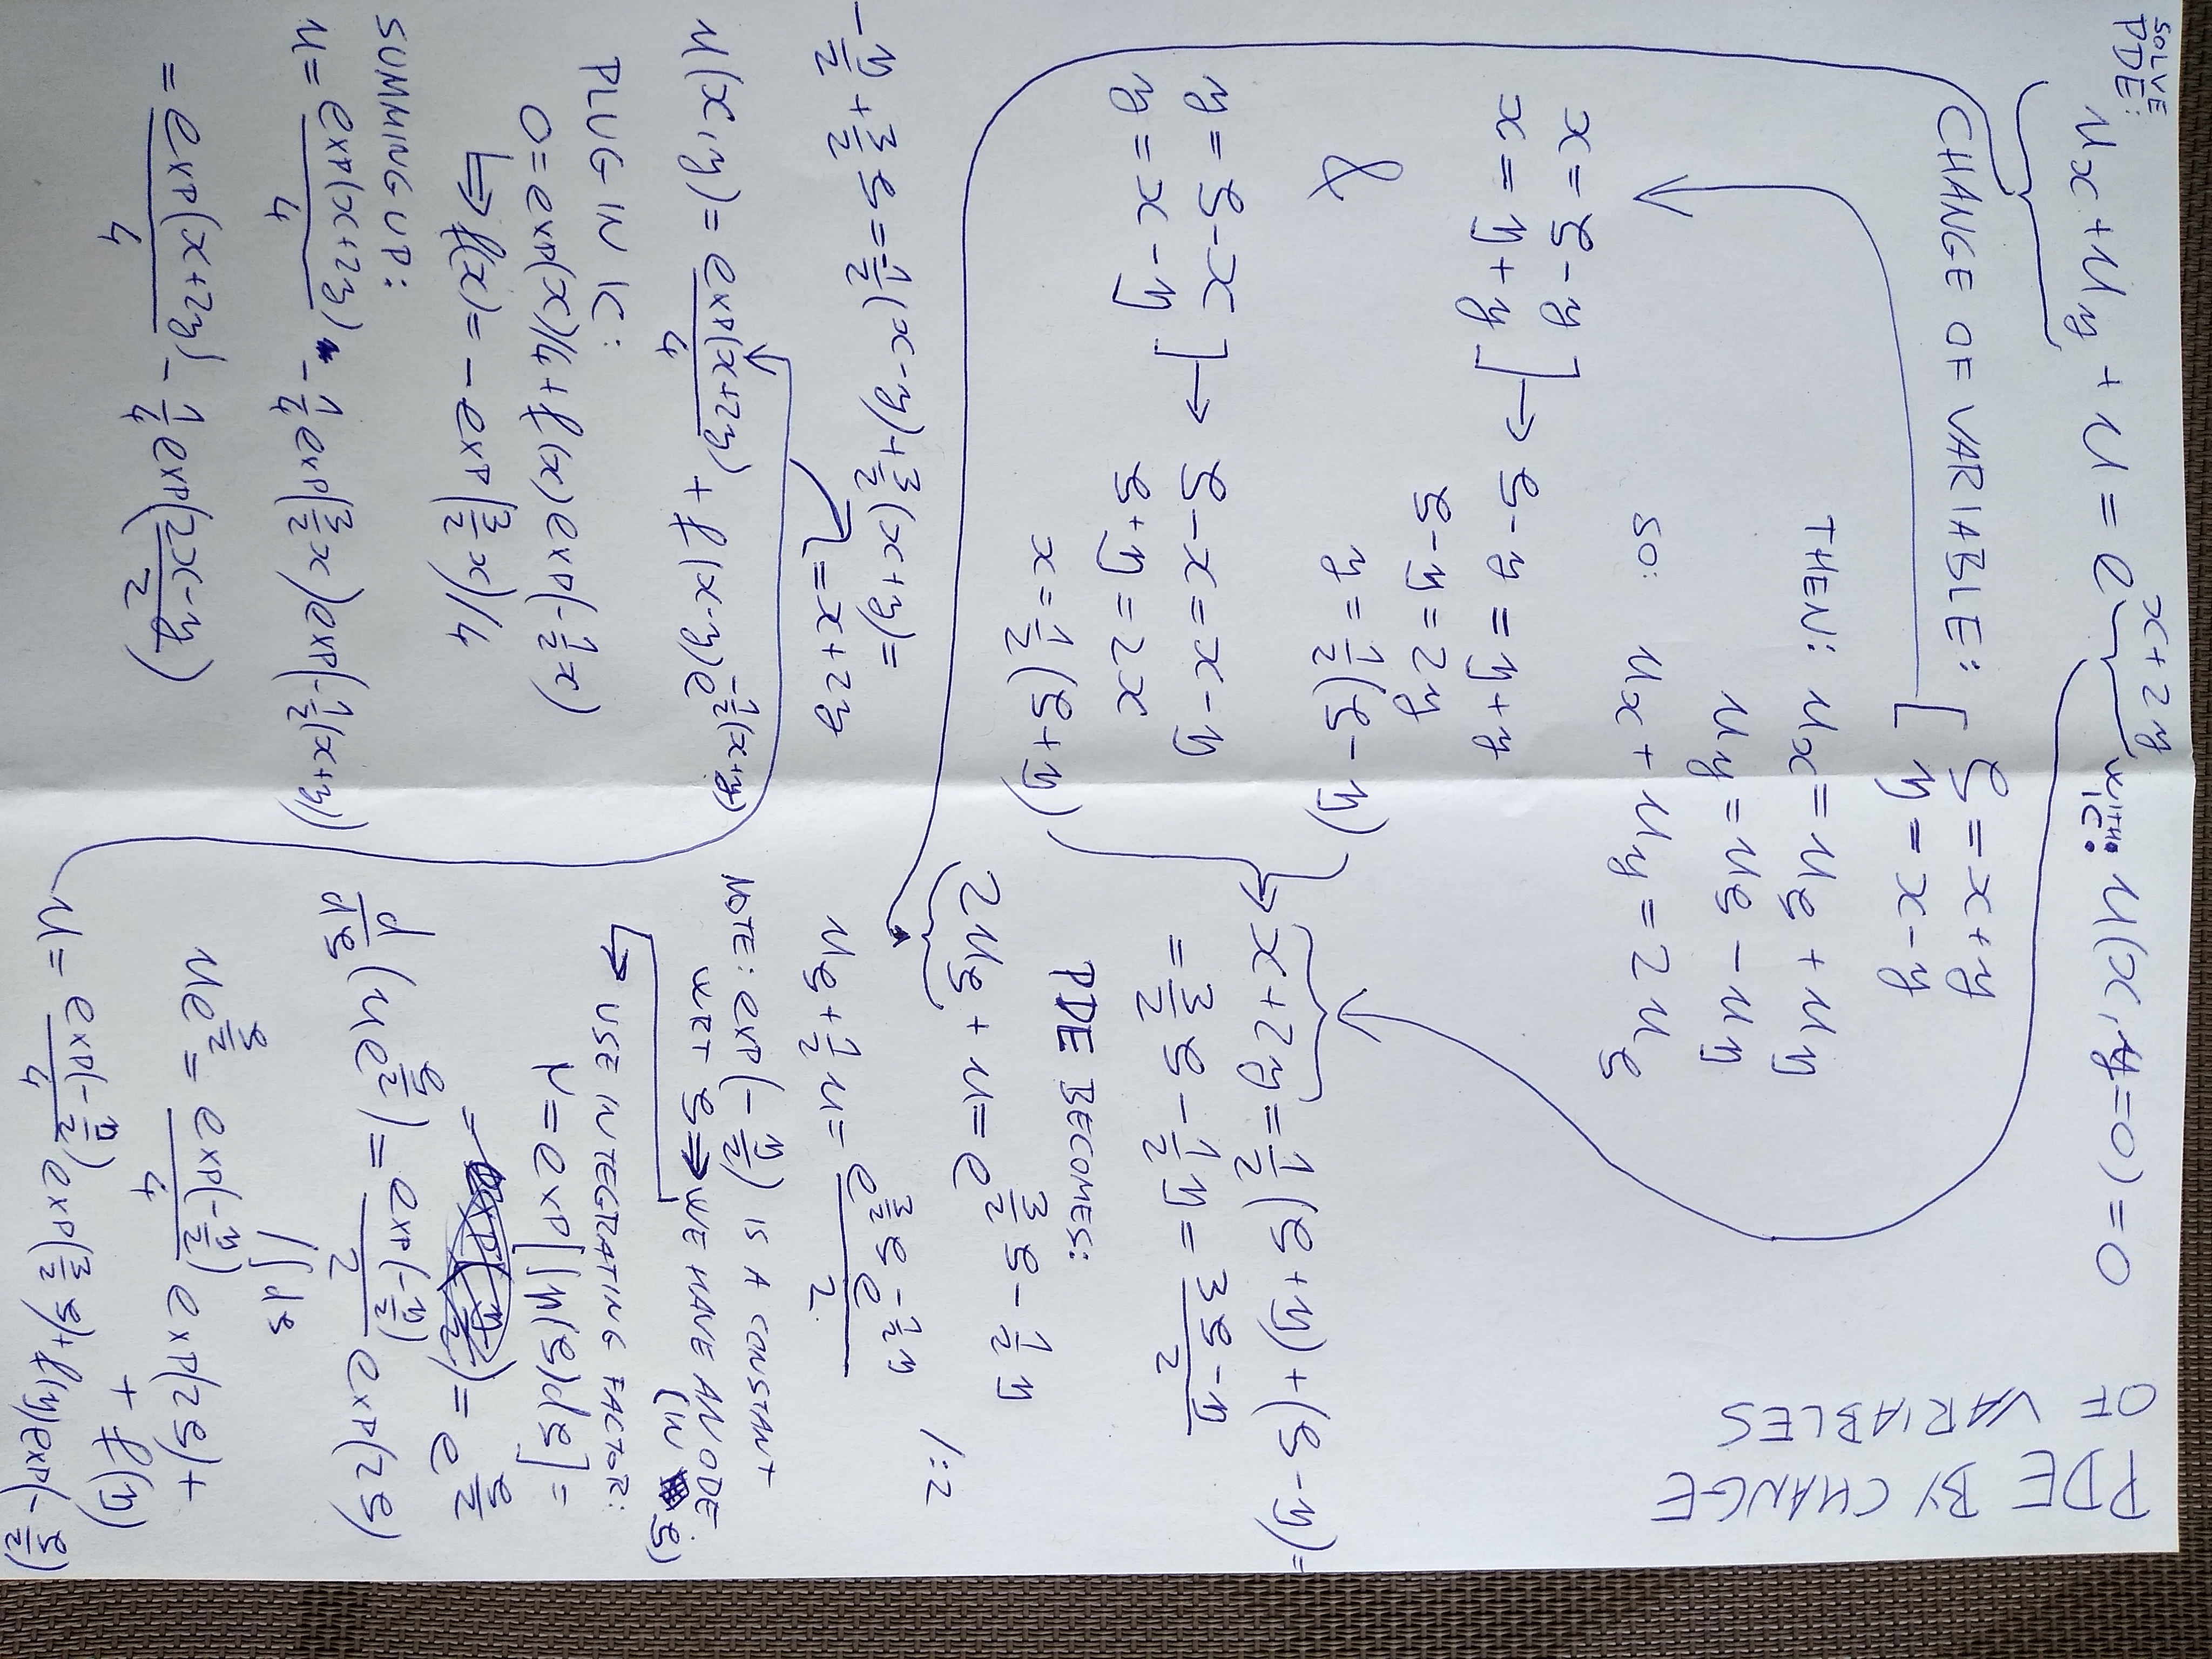 PDE BY CHANGE
OF VARIABLES
SOLVE
PDE:
u_x + u_y + u = e^{x+2y} WITH IC: u(x, y=0) = 0
CHANGE OF VARIABLE: ξ = x+y
η = x-y
THEN: u_x = u_ξ + u_η
u_y = u_ξ - u_η
SO: u_x + u_y = 2u_ξ
x = ξ-y
x = η+y → ξ-y = η+y
ξ-η = 2y
y = 1/2(ξ-η)
&
y = ξ-x
y = x-η → ξ-x = x-η
ξ+η = 2x
x = 1/2(ξ+η)
x+2y = 1/2(ξ+η)+(ξ-η) =
= 3/2 ξ - 1/2 η = (3ξ-η)/2
PDE BECOMES:
2u_ξ + u = e^{3/2 ξ - 1/2 η} /:2
u_ξ + 1/2 u = e^{3/2 ξ} e^{-1/2 η} / 2
NOTE: exp(-η/2) IS A CONSTANT
WRT ξ ⇒ WE HAVE AN ODE
(IN ξ)
↳ USE INTEGRATING FACTOR:
μ = exp[∫M(ξ)dξ] =
= e^{ξ/2}
d/dξ (u e^{ξ/2}) = exp(-η/2)/2 exp(2ξ)
∫dξ
u e^{ξ/2} = exp(-η/2)/4 exp(2ξ) +
+ f(η)
u = exp(-η/2)/4 exp(3/2 ξ) + f(η) exp(-ξ/2)
-η/2 + 3/2 ξ = -1/2(x-y) + 3/2(x+y) =
= x+2y
u(x,y) = exp(x+2y)/4 + f(x-y) e^{-1/2(x+y)}
PLUG IN IC:
0 = exp(x)/4 + f(x) exp(-1/2 x)
↳ f(x) = -exp(3/2 x)/4
SUMMING UP:
u = exp(x+2y)/4 - 1/4 exp(3/2 x) exp(-1/2(x+y))
= exp(x+2y)/4 - 1/4 exp((2x-y)/2)